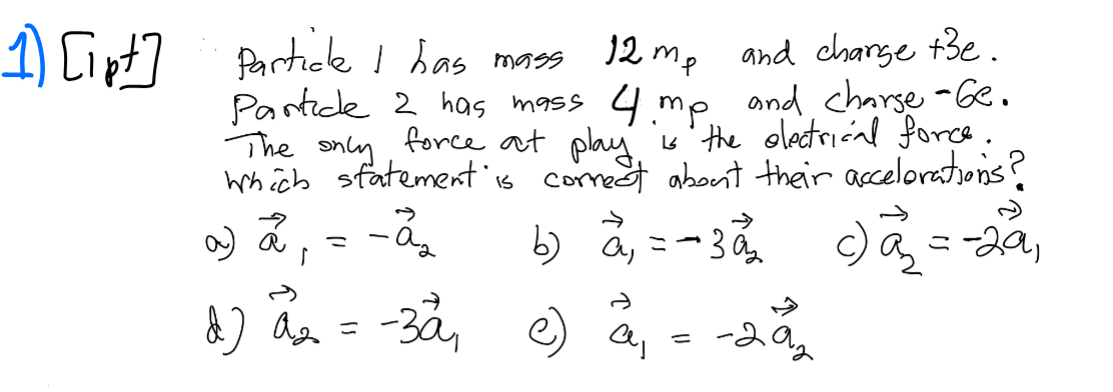 1) [1pt] Particle 1 has mass 12 mₚ and charge +3e.
Particle 2 has mass 4 mₚ and charge -6e.
The only force at play is the electrical force.
Which statement is correct about their accelerations?
a) a⃗₁ = -a⃗₂ b) a⃗₁ = -3a⃗₂ c) a⃗₂ = -2a⃗₁
d) a⃗₂ = -3a⃗₁ e) a⃗₁ = -2a⃗₂